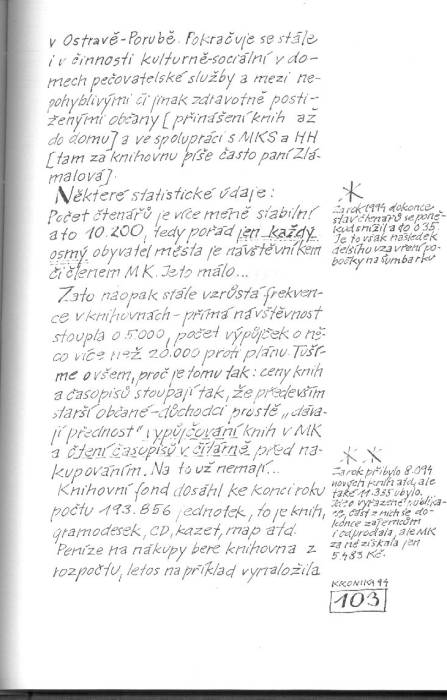 v Ostravě-Porubě. Pokračuje se stále
i v činnosti kulturně-sociální v do-
mech pečovatelské služby a mezi ne-
pohyblivými či jinak zdravotně posti-
ženými občany [přinášení knih až
do domu] a ve spolupráci s MKS a HH
[tam za knihovnu píše často paní Zlá-
malová].
Některé statistické údaje:
Počet čtenářů je více méně stabilní
a to 10.200, tedy pořád jen každý
osmý obyvatel města je návštěvníkem
či členem MK. Je to málo...
Zato naopak stále vzrůstá frekven-
ce v knihovnách – přímá návštěvnost
stoupla o 5000, počet výpůjček o ně-
co více než 20.000 proti plánu. Tuší-
me ovšem, proč je tomu tak: ceny knih
a časopisů stoupají tak, že především
starší občané – důchodci prostě „dáva-
jí přednost" vypůjčování knih v MK
a čtení časopisů v čítárně před na-
kupováním. Na to už nemají...
Knihovní fond dosáhl ke konci roku
počtu 193.856 jednotek, to je knih,
gramodesek, CD, kazet, map atd.
Peníze na nákupy bere knihovna z
rozpočtu, letos například vynaložila
*
Za rok 1994 dokonce
stav čtenářů se poně-
kud snížil a to o 35.
Je to však následek
delšího uzavření po-
bočky na Šumbarku
* *
Za rok přibylo 8.094
nových knih atd, ale
také 11.355 ubylo,
sice vyřazené publika-
ce, část z nich se do-
konce zájemcům
i odprodala, ale MK
za ně získala jen
5.483 Kč.
KRONIKA 94
103